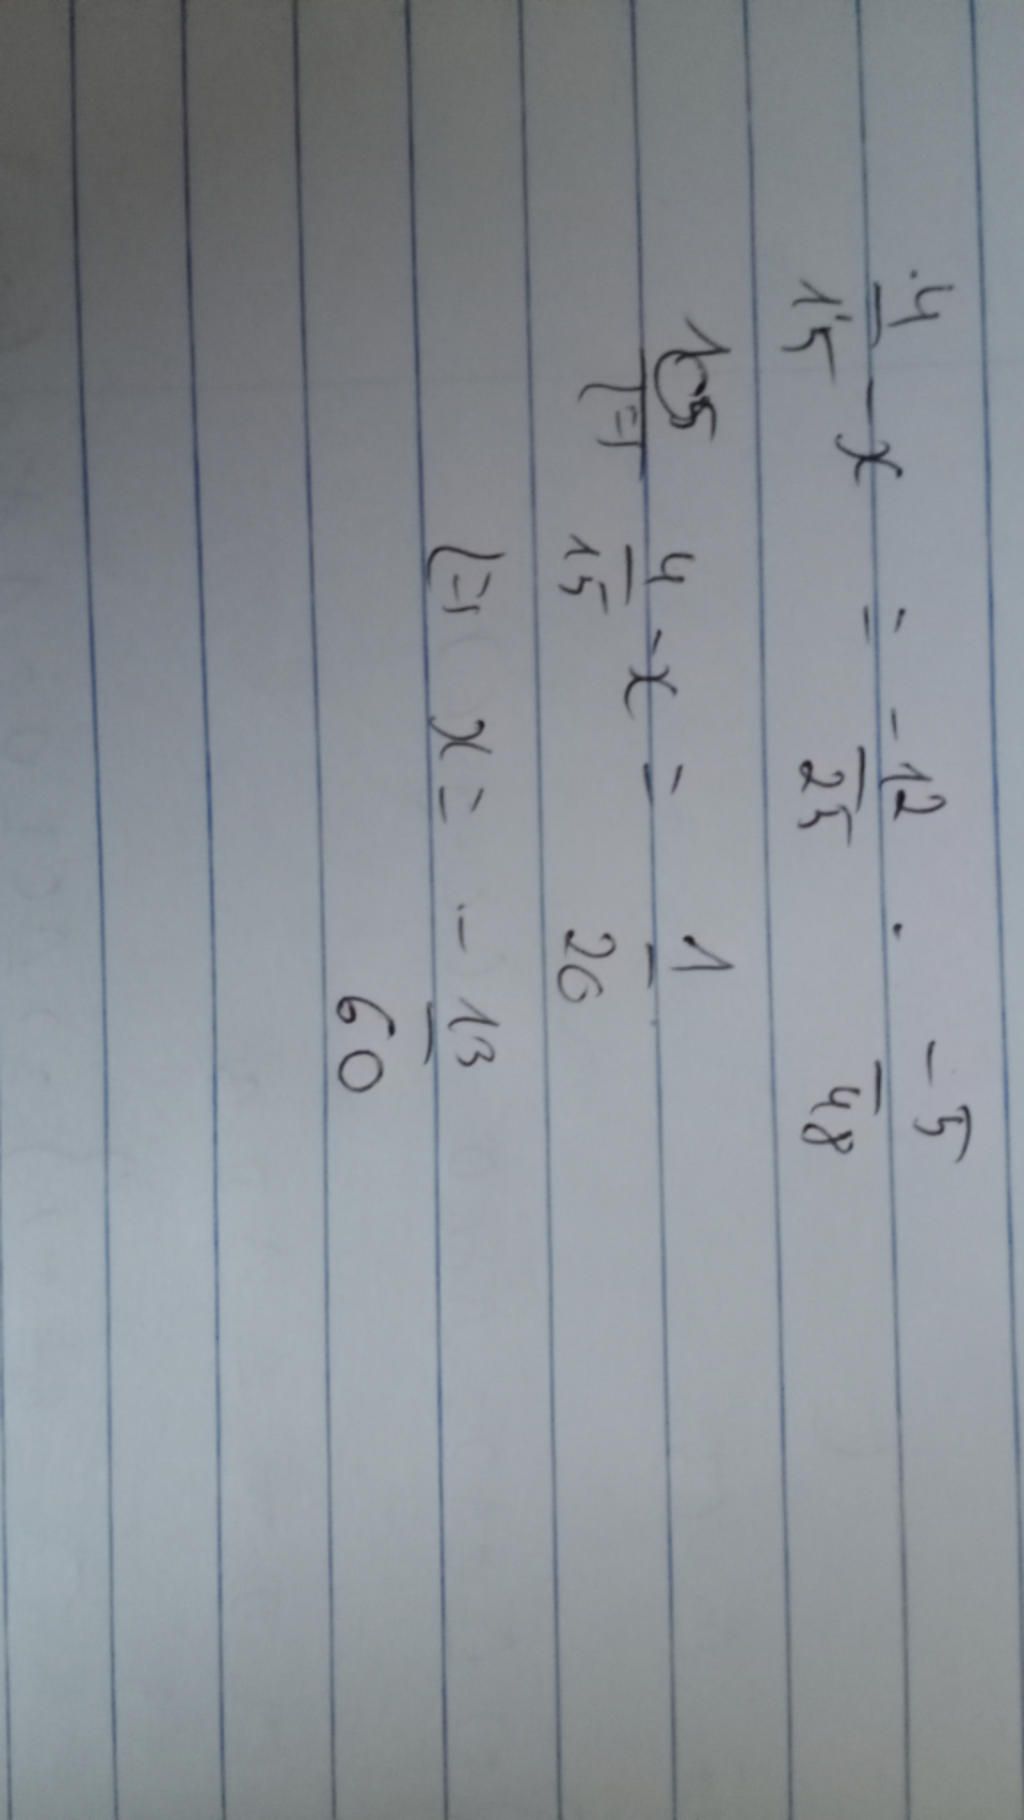 4/15 - x = -12/25 . -5/48
(=) 4/15 - x = 1/20
(=) x = -13/60